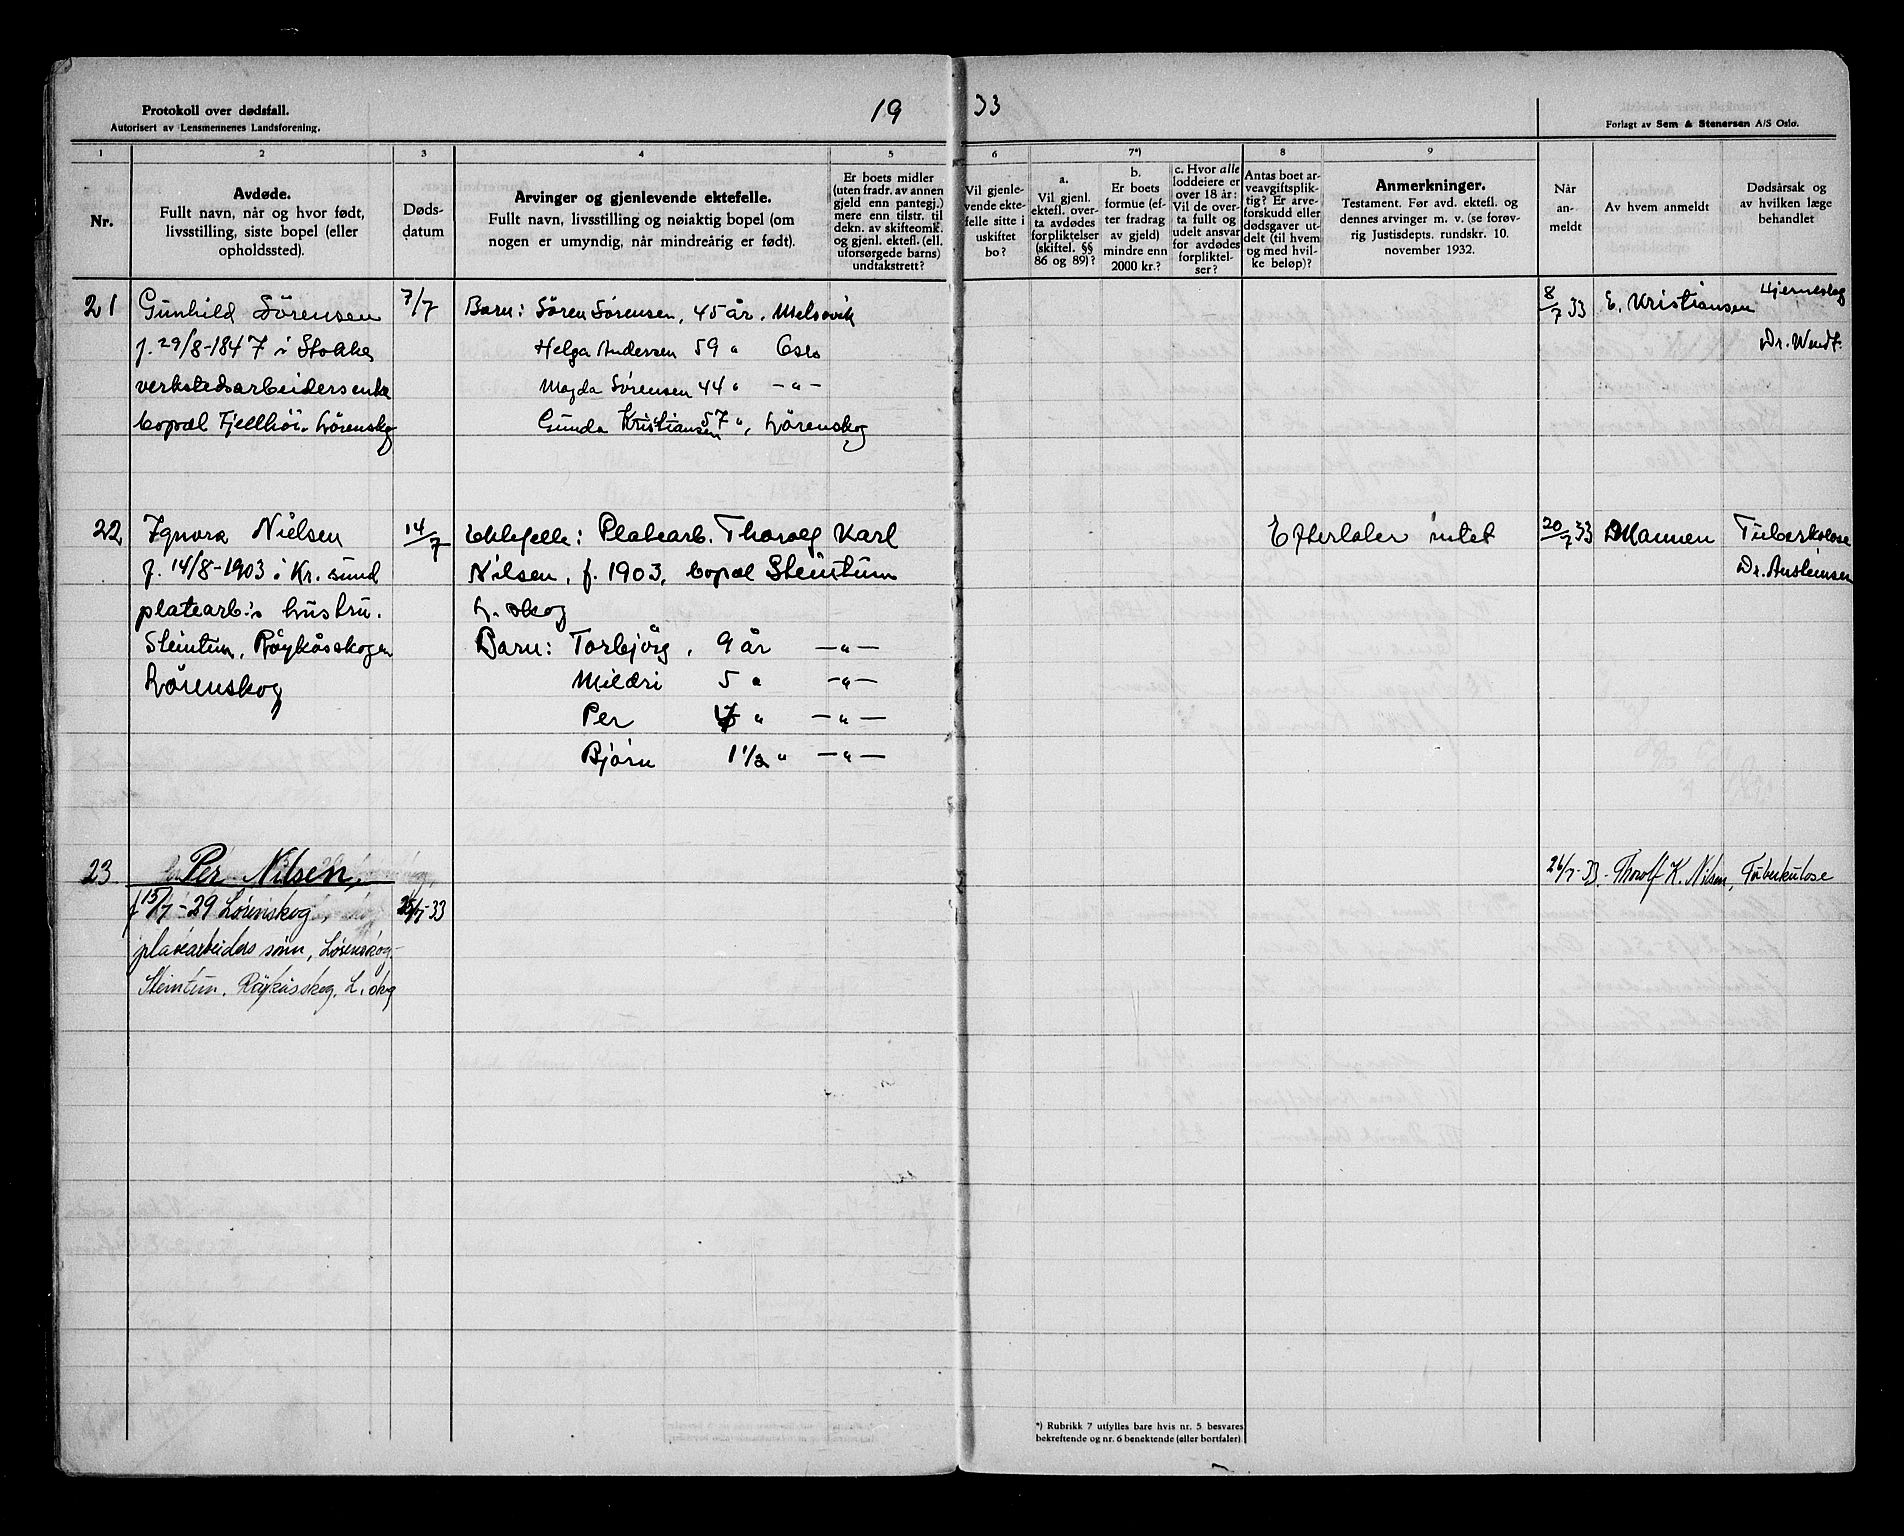 Protokoll over dødsfall.
Autorisert av Lensmennenes Landsforening.
19 33
Forlagt av Sem & Stenersen A/S Oslo.
1 2 3 4 5 6 7*) 8 9
Nr.
Avdøde.
Fullt navn, når og hvor født,
livsstilling, siste bopel (eller
opholdssted).
Døds-
datum
Arvinger og gjenlevende ektefelle.
Fullt navn, livsstilling og nøiaktig bopel (om
nogen er umyndig, når mindreårig er født).
Er boets midler
(uten fradr. av annen
gjeld enn pantegj.)
mere enn tilstr. til
dekn. av skifteomk.
og gjenl. ektefl. (ell.
uforsørgede barns)
undtakstrett?
Vil gjenle-
vende ekte-
felle sitte i
uskiftet
bo?
a.
Vil gjenl.
ektefl. over-
ta avdødes
forpliktelser
(skiftel. §§
86 og 89)?
b.
Er boets
formue (ef-
ter fradrag
av gjeld)
mindre enn
2000 kr.?
c. Hvor alle
loddeiere er
over 18 år:
Vil de over-
ta fullt og
udelt ansvar
for avdødes
forpliktel-
ser?
Antas boet ar-
veavgiftsplik-
tig? Er arve-
forskudd eller
dødsgaver ut-
delt (til hvem
og med hvil-
ke beløp)?
Anmerkninger.
Testament. Før avd. ektefl. og
dennes arvinger m. v. (se forøv-
rig Justisdepts. rundskr. 10.
november 1932.
Når
an-
meldt
Av hvem anmeldt
Dødsårsak og
av hvilken læge
behandlet
21 Gunhild Sørensen 7/7 Barn: Søren Sørensen, 45 år. Melsovik 8/7 33 E. Kristiansen Hjerneslag
f. 29/8-1847 i Stokke Helga Andersen 59 " Oslo Dr. Wendt.
verkstedsarbeidersenke Magda Sørensen 44 " -"-
bopæl Fjellhøi. Lørenskog Gunda Kristiansen 57 ", Lørenskog
22 Nielsen 14/7 Ektefelle: Platearb. Thoralf Karl Efterlater intet 20/7 33 Mannen Tuberkulose
f. 14/8-1903 i Kr. sund Nilsen, f. 1903, bopæl Steintun Dr. Austeinsen
platearb.s hustru. L. skog
Steintun, Røykåsskogen Barn: Torbjørg, 9 år -"-
Lørenskog Mildri 5 " -"-
Per " -"-
Bjørn 1 1/2 " -"-
23. Per Nilsen, 26/7-33. Thorolf K. Nilsen, Tuberkulose
f 15/7-29 Lørenskog, 25/7-33
platearbeiders sønn, Lørenskog-
Steintun, Røykåsskog, L.skog
*) Rubrikk 7 utfylles bare hvis nr. 5 besvares
bekreftende og nr. 6 benektende (eller bortfaler).